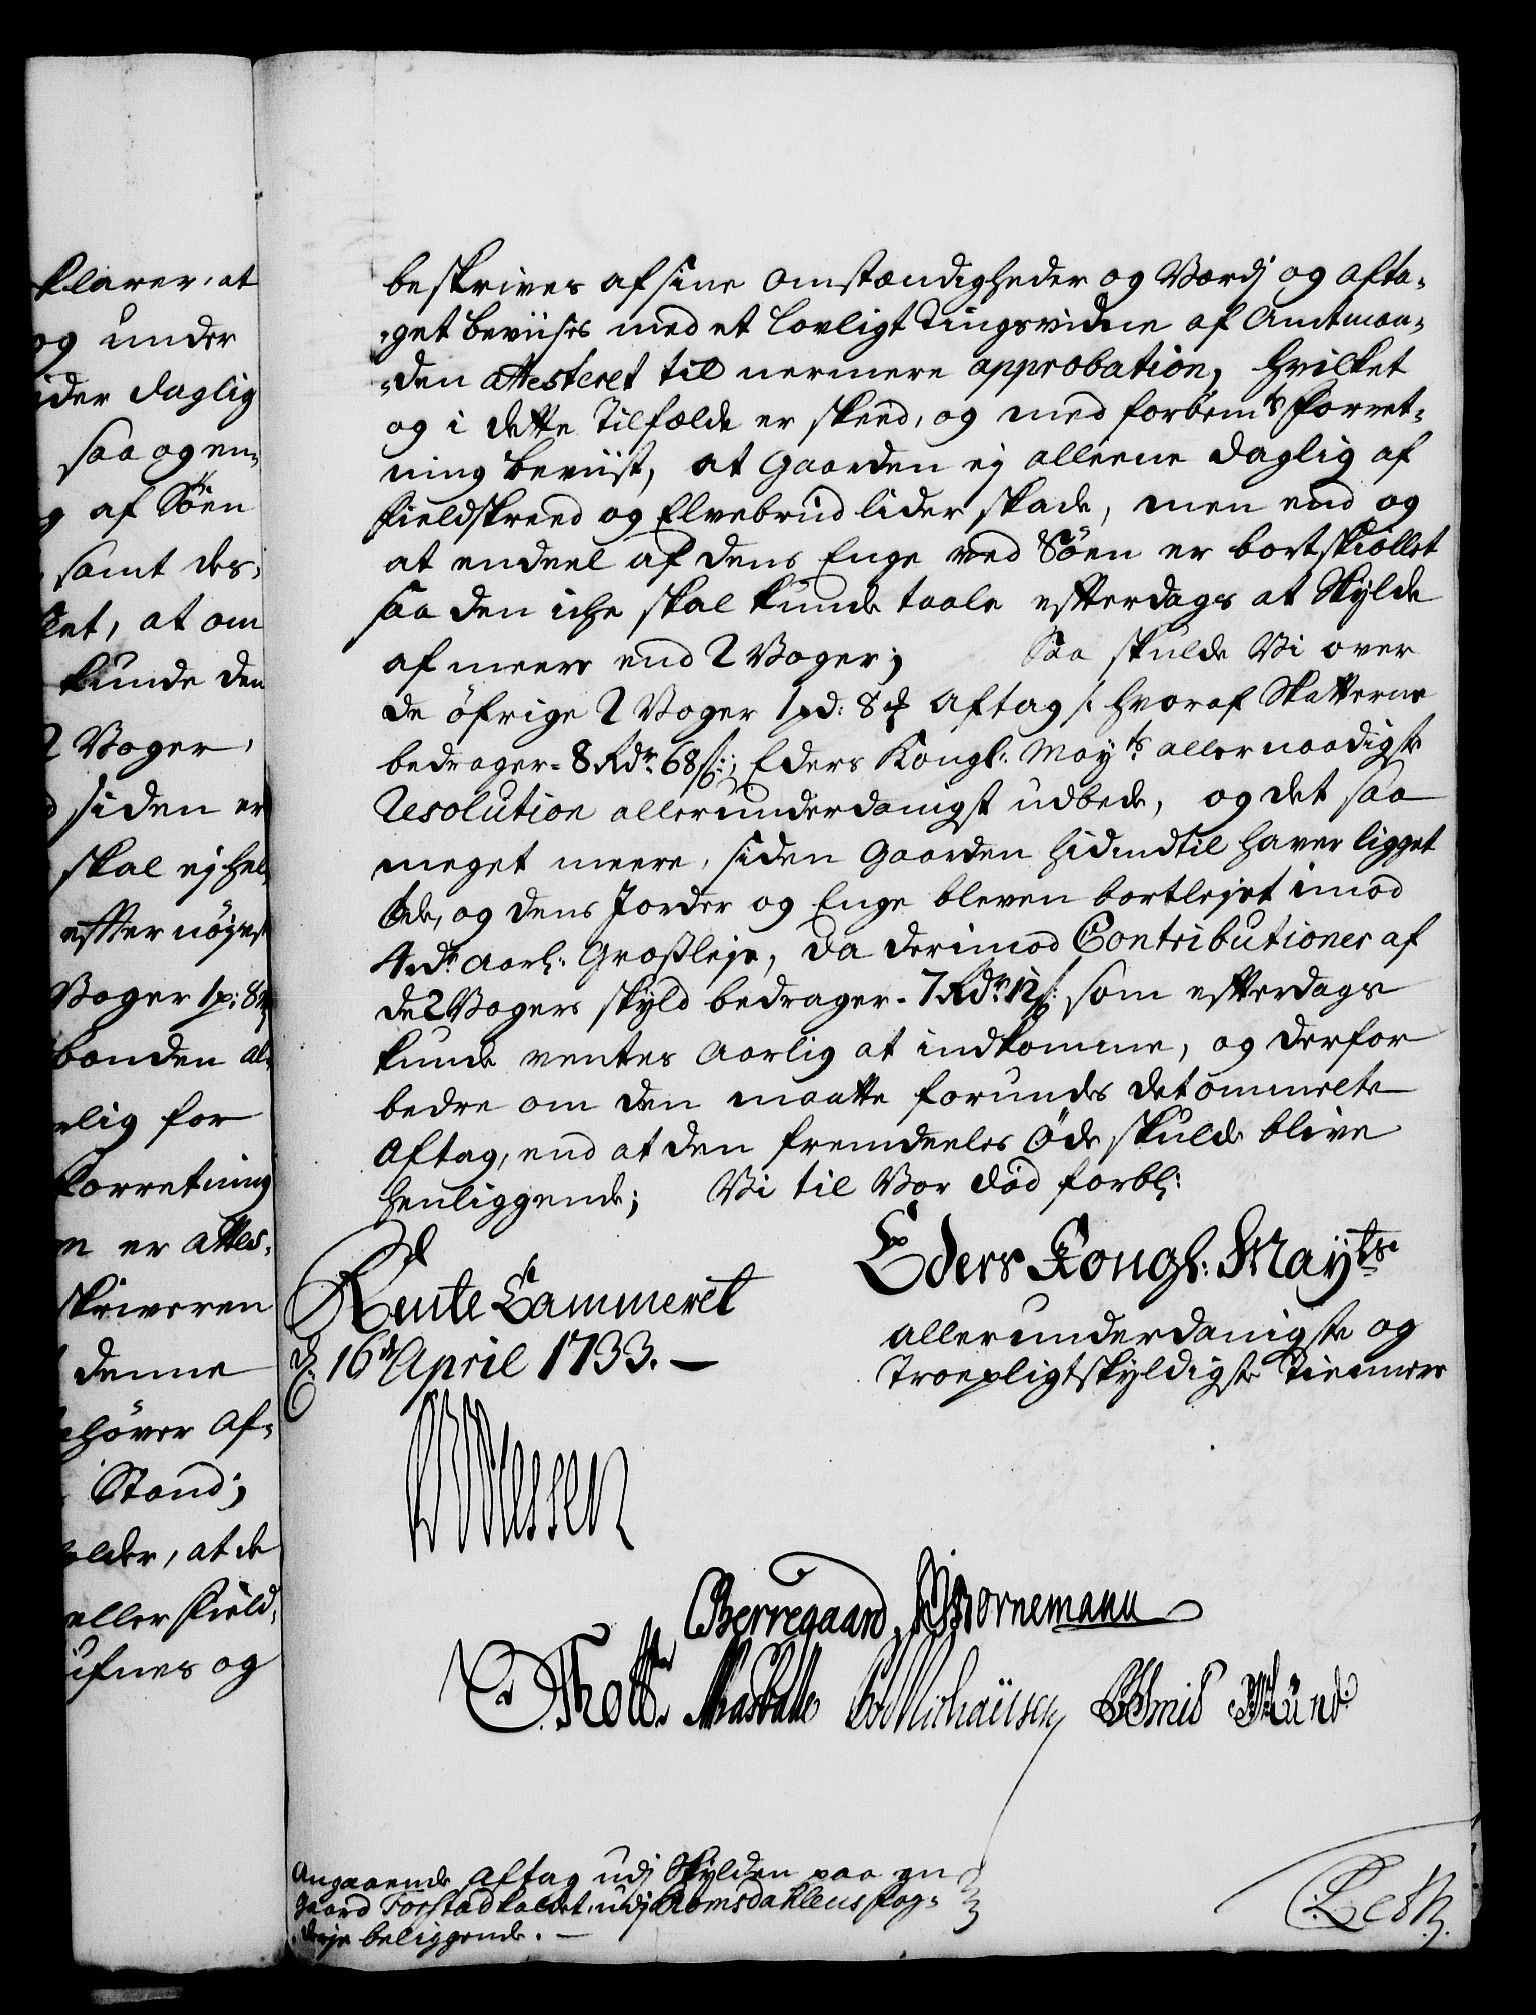 klarer, at
og under
ider daglig
saa og en-
g af Söen
samt des-
ket, at om
kunde den
2 Voger,
siden er
skal ej hel-
effter nöyest
Voger 1 p: 8
bonden al-
elig for
forretning
n er attes-
skriveren
denne
ehöver Af-
Stand;
elder, at de
eller Field-
ufnes og
beskrives af sine omstændigheder og Værdj og afta-
-get beviises med et lovligt Tingsvidne af Amtman-
-den attesteret til nermere approbation, hvilket
og i dette Tilfælde er skeed, og med forbemte forret-
ning beviist, at Gaarden ej alleene daglig af
Fieldskreed og Elvebrud lider skade, men end og
at endeel af dens Enge ved Söen er bortskiollet
saa den iche skal kunde taale effterdags at Skylde
af meere end 2 Voger; Saa skulde Vi over
de öfrige 2 Voger 1 pd: 8 Aftag /: hvoraf Skatterne
bedrager 8 Rdr 68 s :/, Eders Kongl: Mayts allernaadigste
Resolution allerunderdanigst udbede, og det saa
meget meere, siden Gaarden hidindtil haver ligget
öde, og dens Jorder og Enge bleven bortlejet imod
4 dr aarl: Græsleje, da derimod Contributioner af
de 2 Vogers skyld bedrager 7 Rdr 12 s: som effterdags
kunde ventes aarlig at indkomme, og derfor
bedre om den maatte forundes det ommelte
Aftag, end at den fremdeeles Öde skulde blive
henliggende; Vi til Vor död forbl:
Eders Kongl: Mayts
Rente Cammeret
d: 16de April 1733. —
allerunderdanigste og
Troepligtskyldigste Tienere
Berregaard Bornemann
O Thott
Angaaende Aftag udj Skylden paa en
gaard Forstad kaldet, udj Romsdahlens fog-
derje beliggende. —